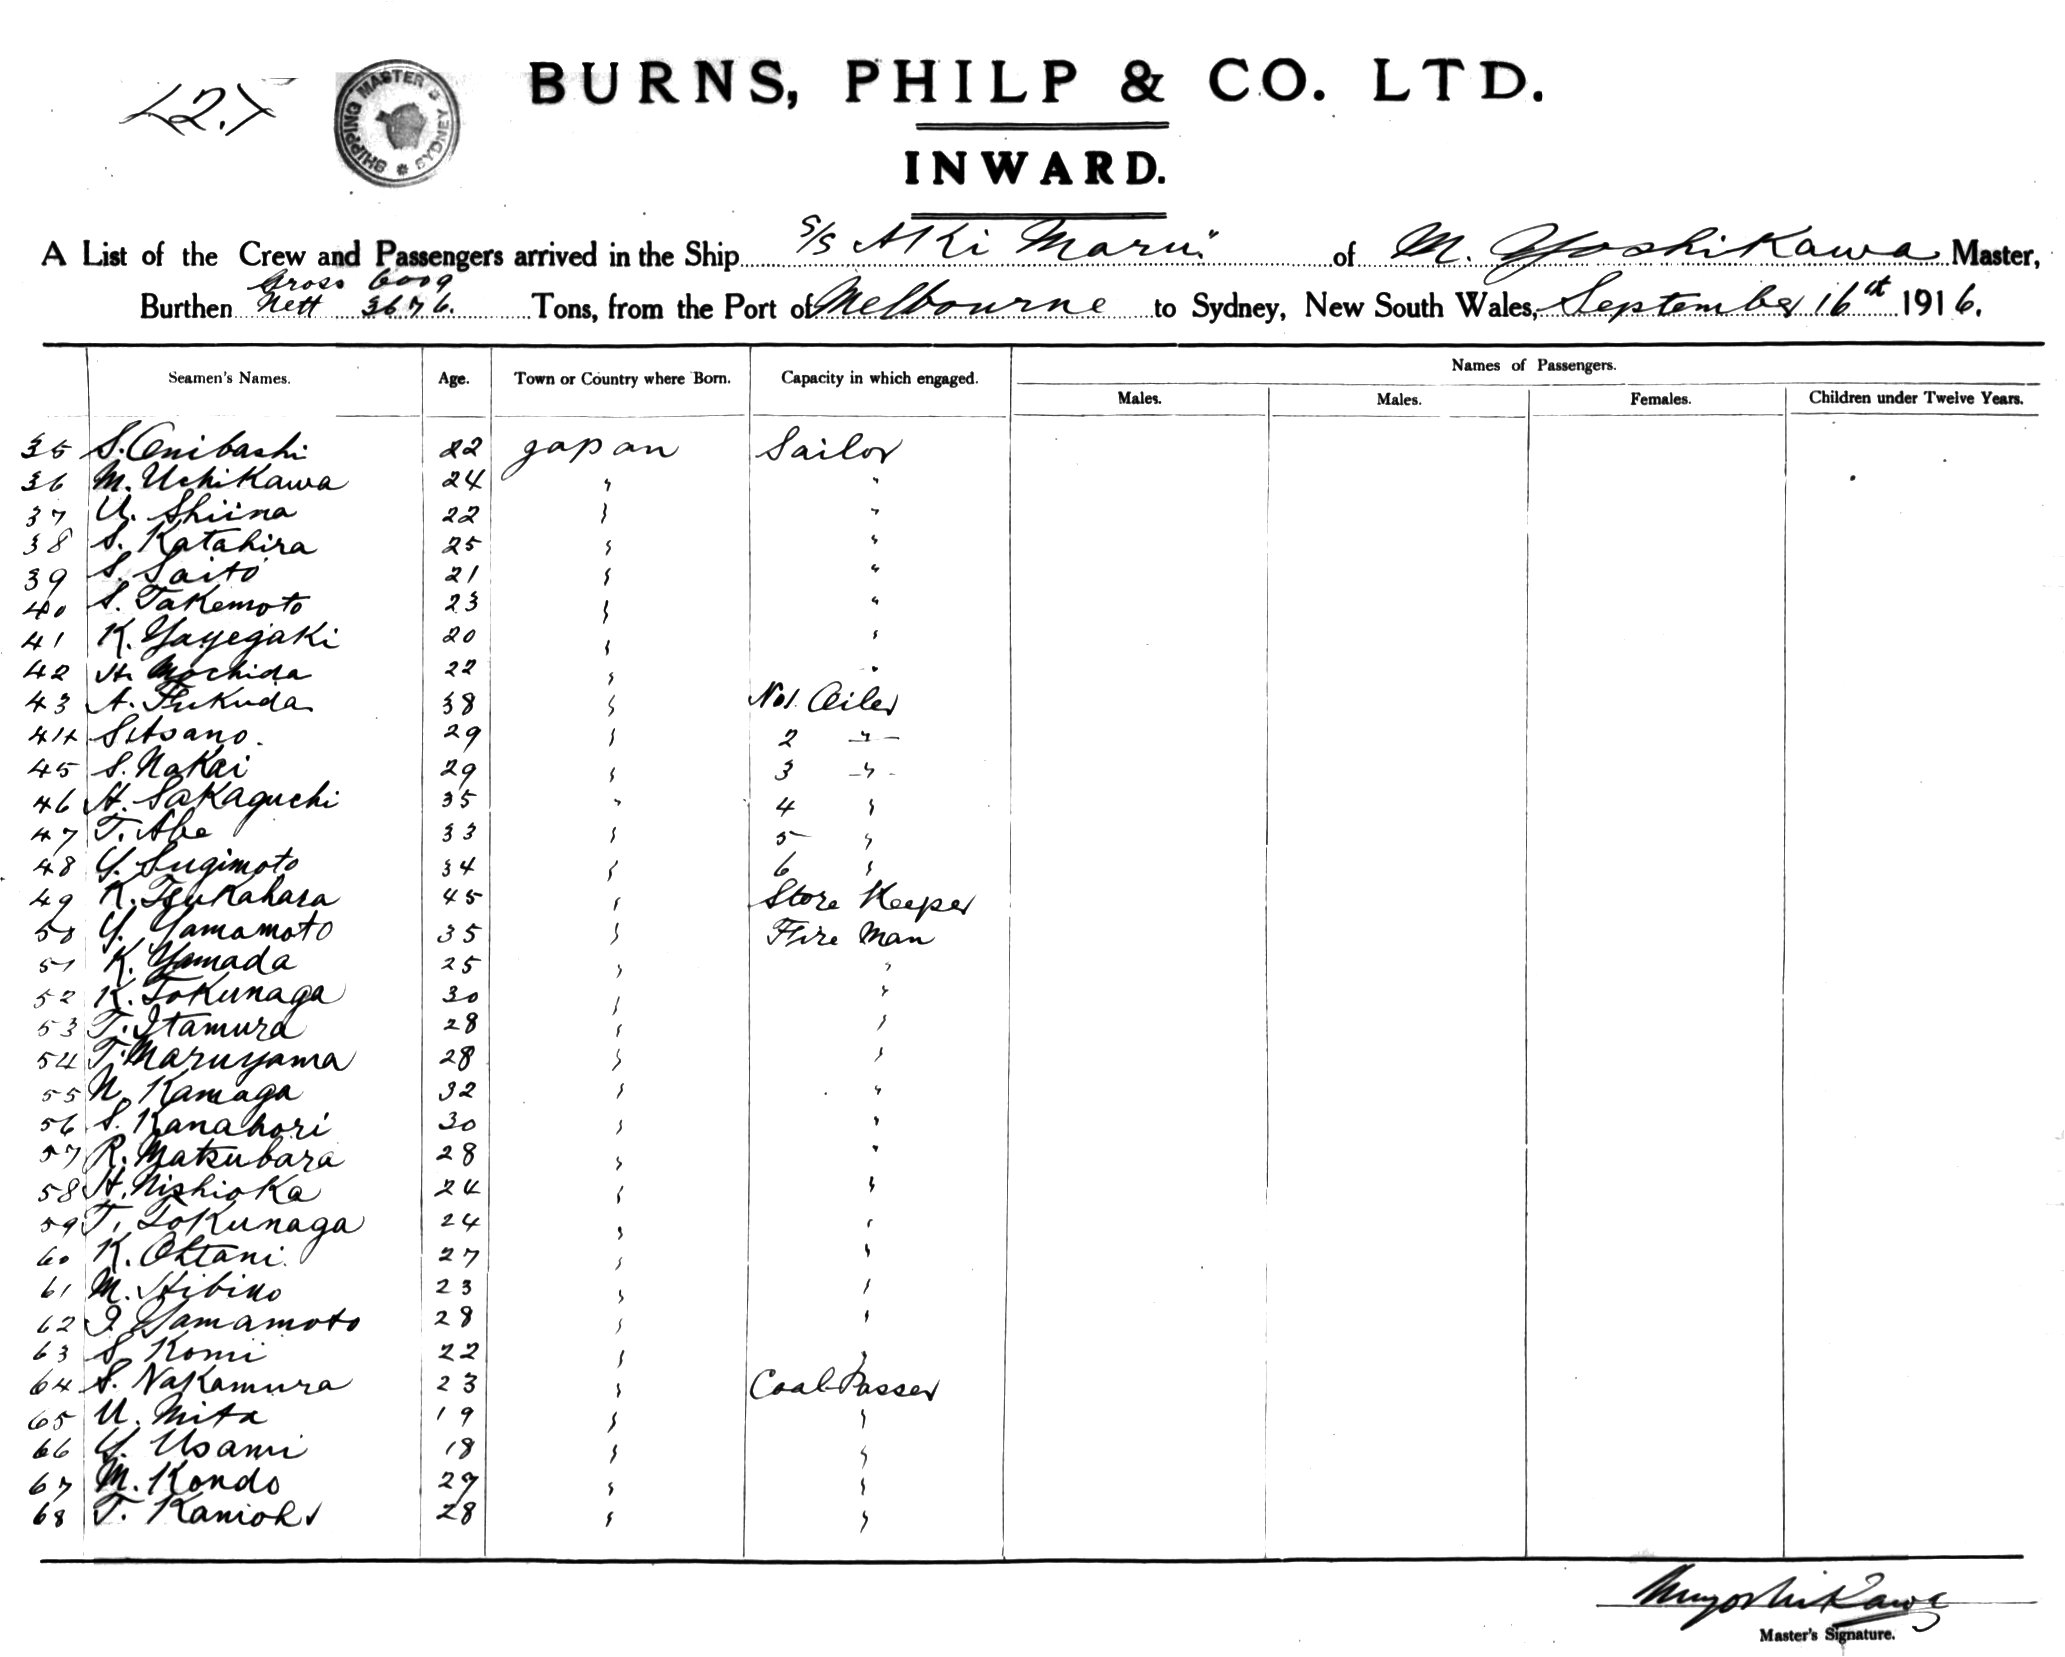 <2.>
SHIPPING MASTER SYDNEY
BURNS, PHILP & CO. LTD.
INWARD.
A List of the Crew and Passengers arrived in the Ship S/S "Aki Maru" of M. Yoshikawa Master,
Gross 6009
Burthen Nett 3676. Tons, from the Port of Melbourne to Sydney, New South Wales, September 16st 1916.
Names of Passengers.
Seamen's Names. Age. Town or Country where Born. Capacity in which engaged.
Males. Males. Females. Children under Twelve Years.
35 S. Onibashi 22 Japan Sailor
36 M. Uchikawa 24 " "
37 U. Shiina 22 " "
38 S. Katahira 25 " "
39 S. Saito 21 " "
40 S. Takemoto 23 " "
41 K. Yayegaki 20 " "
42 H. Mochida 22 " "
43 A. Fukuda 38 " No1. Oiler
44 S. Asano. 29 " 2 "
45 S. Nakai 29 " 3 "
46 H. Sakaguchi 35 " 4 "
47 T. Abe 33 " 5 "
48 Y. Sugimoto 34 " 6 "
49 K. Tsukahara 45 " Store Keeper
50 Y. Yamamoto 35 " Fire Man
51 K. Yamada 25 " "
52 K. Tokunaga 30 " "
53 T. Itamura 28 " "
54 T. Maruyama 28 " "
55 N. Kamaga 32 " "
56 S. Kanahori 30 " "
57 R. Matsubara 28 " "
58 H. Nishioka 24 " "
59 T. Tokunaga 24 " "
60 K. Ohtani 27 " "
61 M. Hibino 23 " "
62 I. Yamamoto 28 " "
63 S. Komi 22 " "
64 S. Nakamura 23 " Coal Passer
65 U. Mita 19 " "
66 Y. Usami 18 " "
67 M. Kondo 29 " "
68 T. 28 " "
Myoshikawa
Master's Signature.